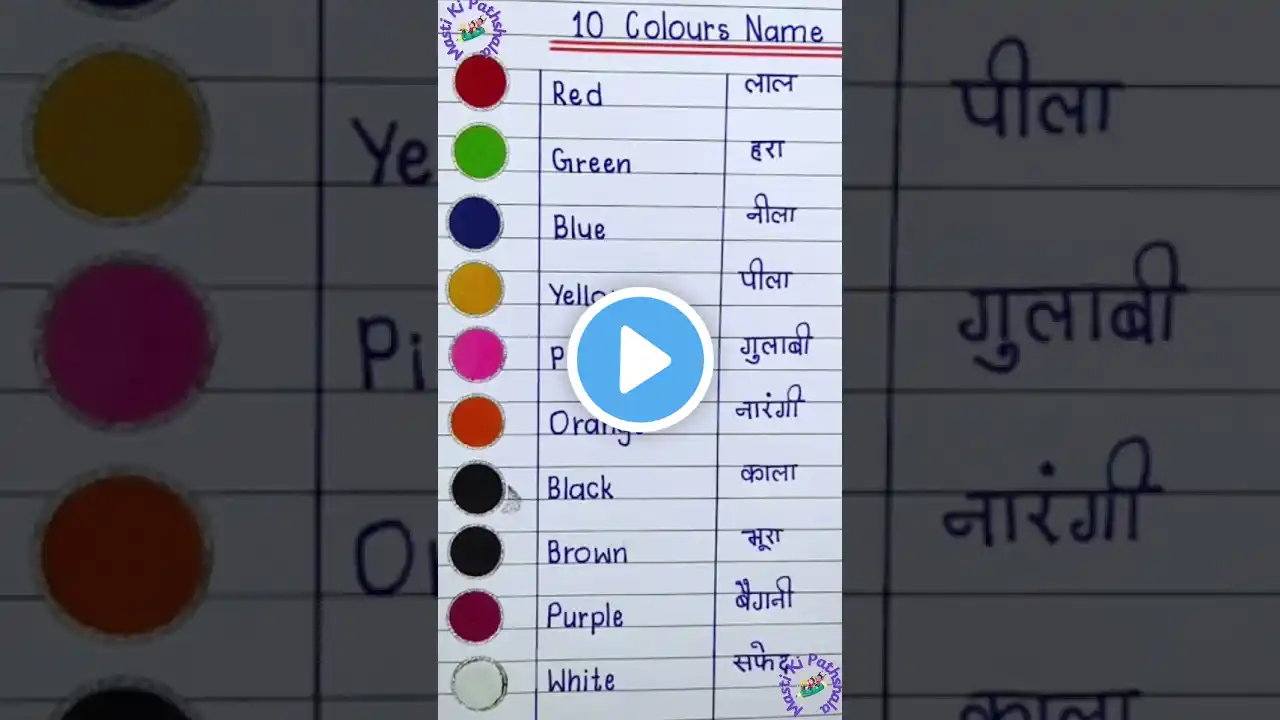 Masti Ki Pathshala
10 Colours Name
Red लाल
Green हरा
Blue नीला
पीला
गुलाबी
Orange नारंगी
Black काला
Brown भूरा
Purple बैगनी
White सफेद
Masti Ki Pathshala
पीला
गुलाबी
नारंगी